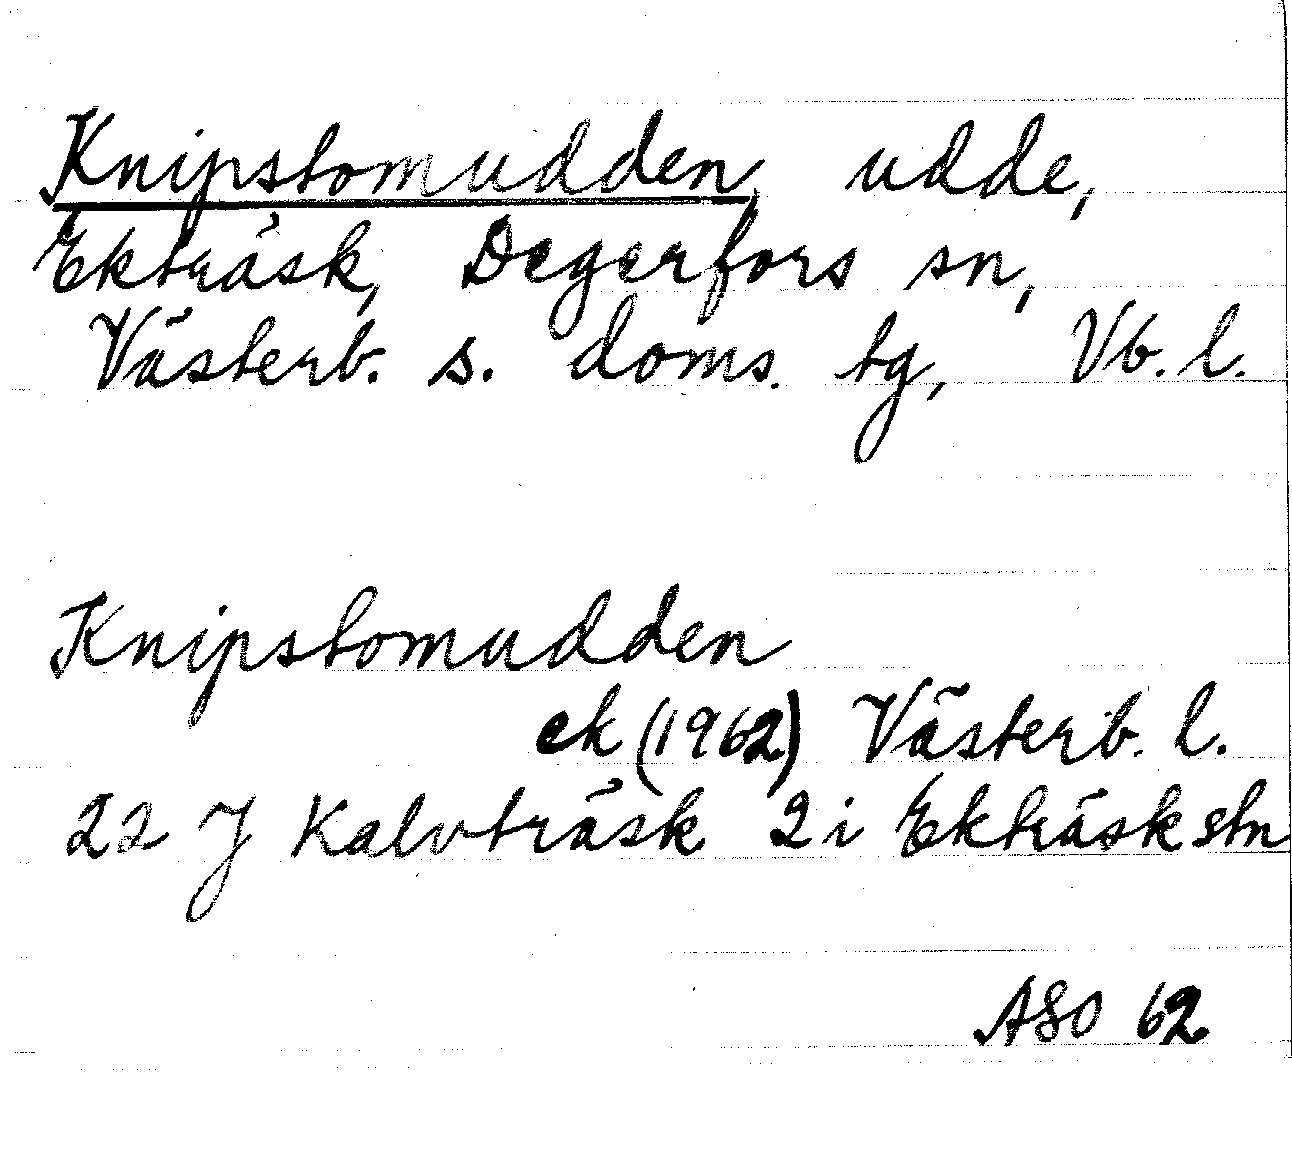 Knipstomudden, udde,
Ekträsk, Degerfors sn,
Västerb. s. doms. tg, Vb. l.
Knipstomudden
ek (1962) Västerb. l.
22 J Kalvträsk 2 i Ekträsk stn
ASO 62